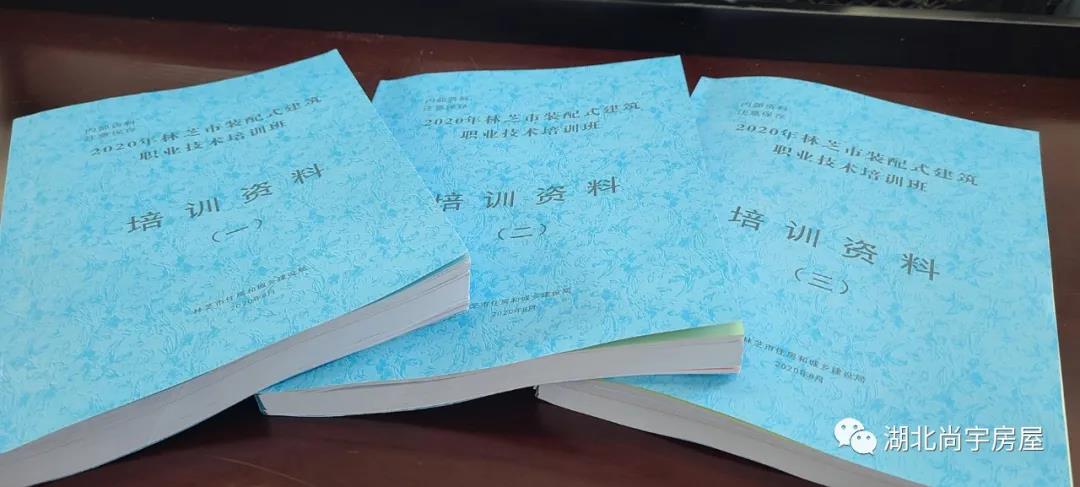 内部资料
注意保存
2020年林芝市装配式建筑
职业技术培训班
培训资料
(一)
林芝市住房和城乡建设局
2020年8月
内部资料
注意保存
2020年林芝市装配式建筑
职业技术培训班
培训资料
(二)
林芝市住房和城乡建设局
2020年8月
内部资料
注意保存
2020年林芝市装配式建筑
职业技术培训班
培训资料
(三)
林芝市住房和城乡建设局
2020年8月
湖北尚宇房屋